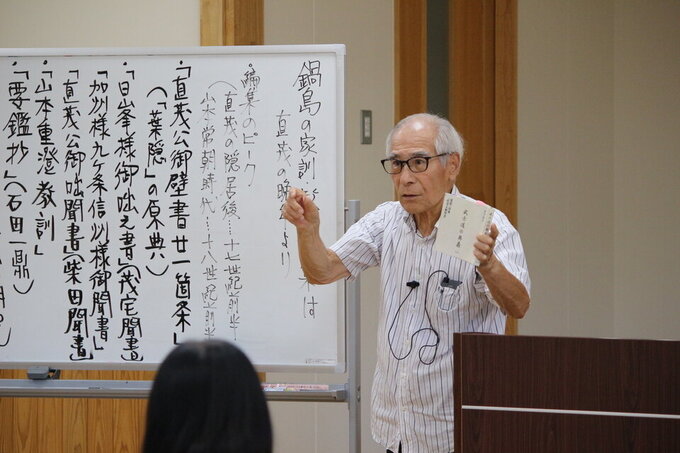 鍋島の家訓
直茂の晩年より
・編集のピーク
(直茂の隠居後…十七世紀前半
山本常朝時代…十八世紀前半
・「直茂公御壁書廿一箇条」
(「葉隠」の原典)
・「日峯様御咄之書」(茂宅聞書)
・「加州様九ケ条信州様御聞書」
・「直茂公御咄聞書」(柴田聞書)
・「山本重澄教訓」
・「要鑑抄」(石田一鼎)